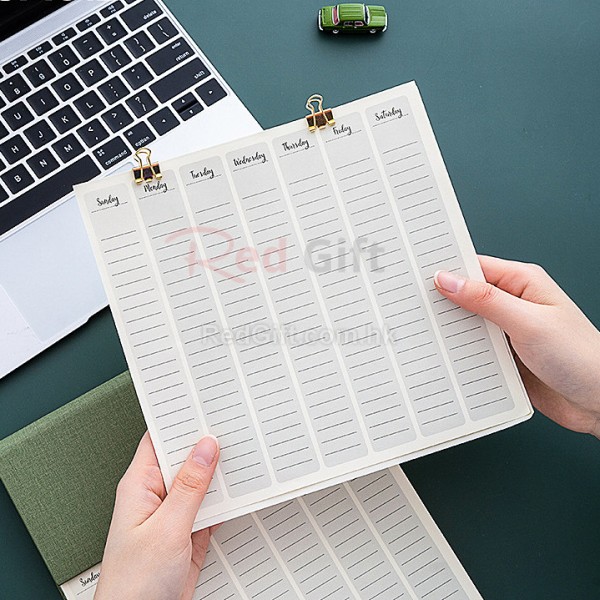 Sunday Monday Tuesday Wednesday Thursday Friday Saturday
Red Gift
RedGift.com.hk
delete
return
shift
command
option
Sunday